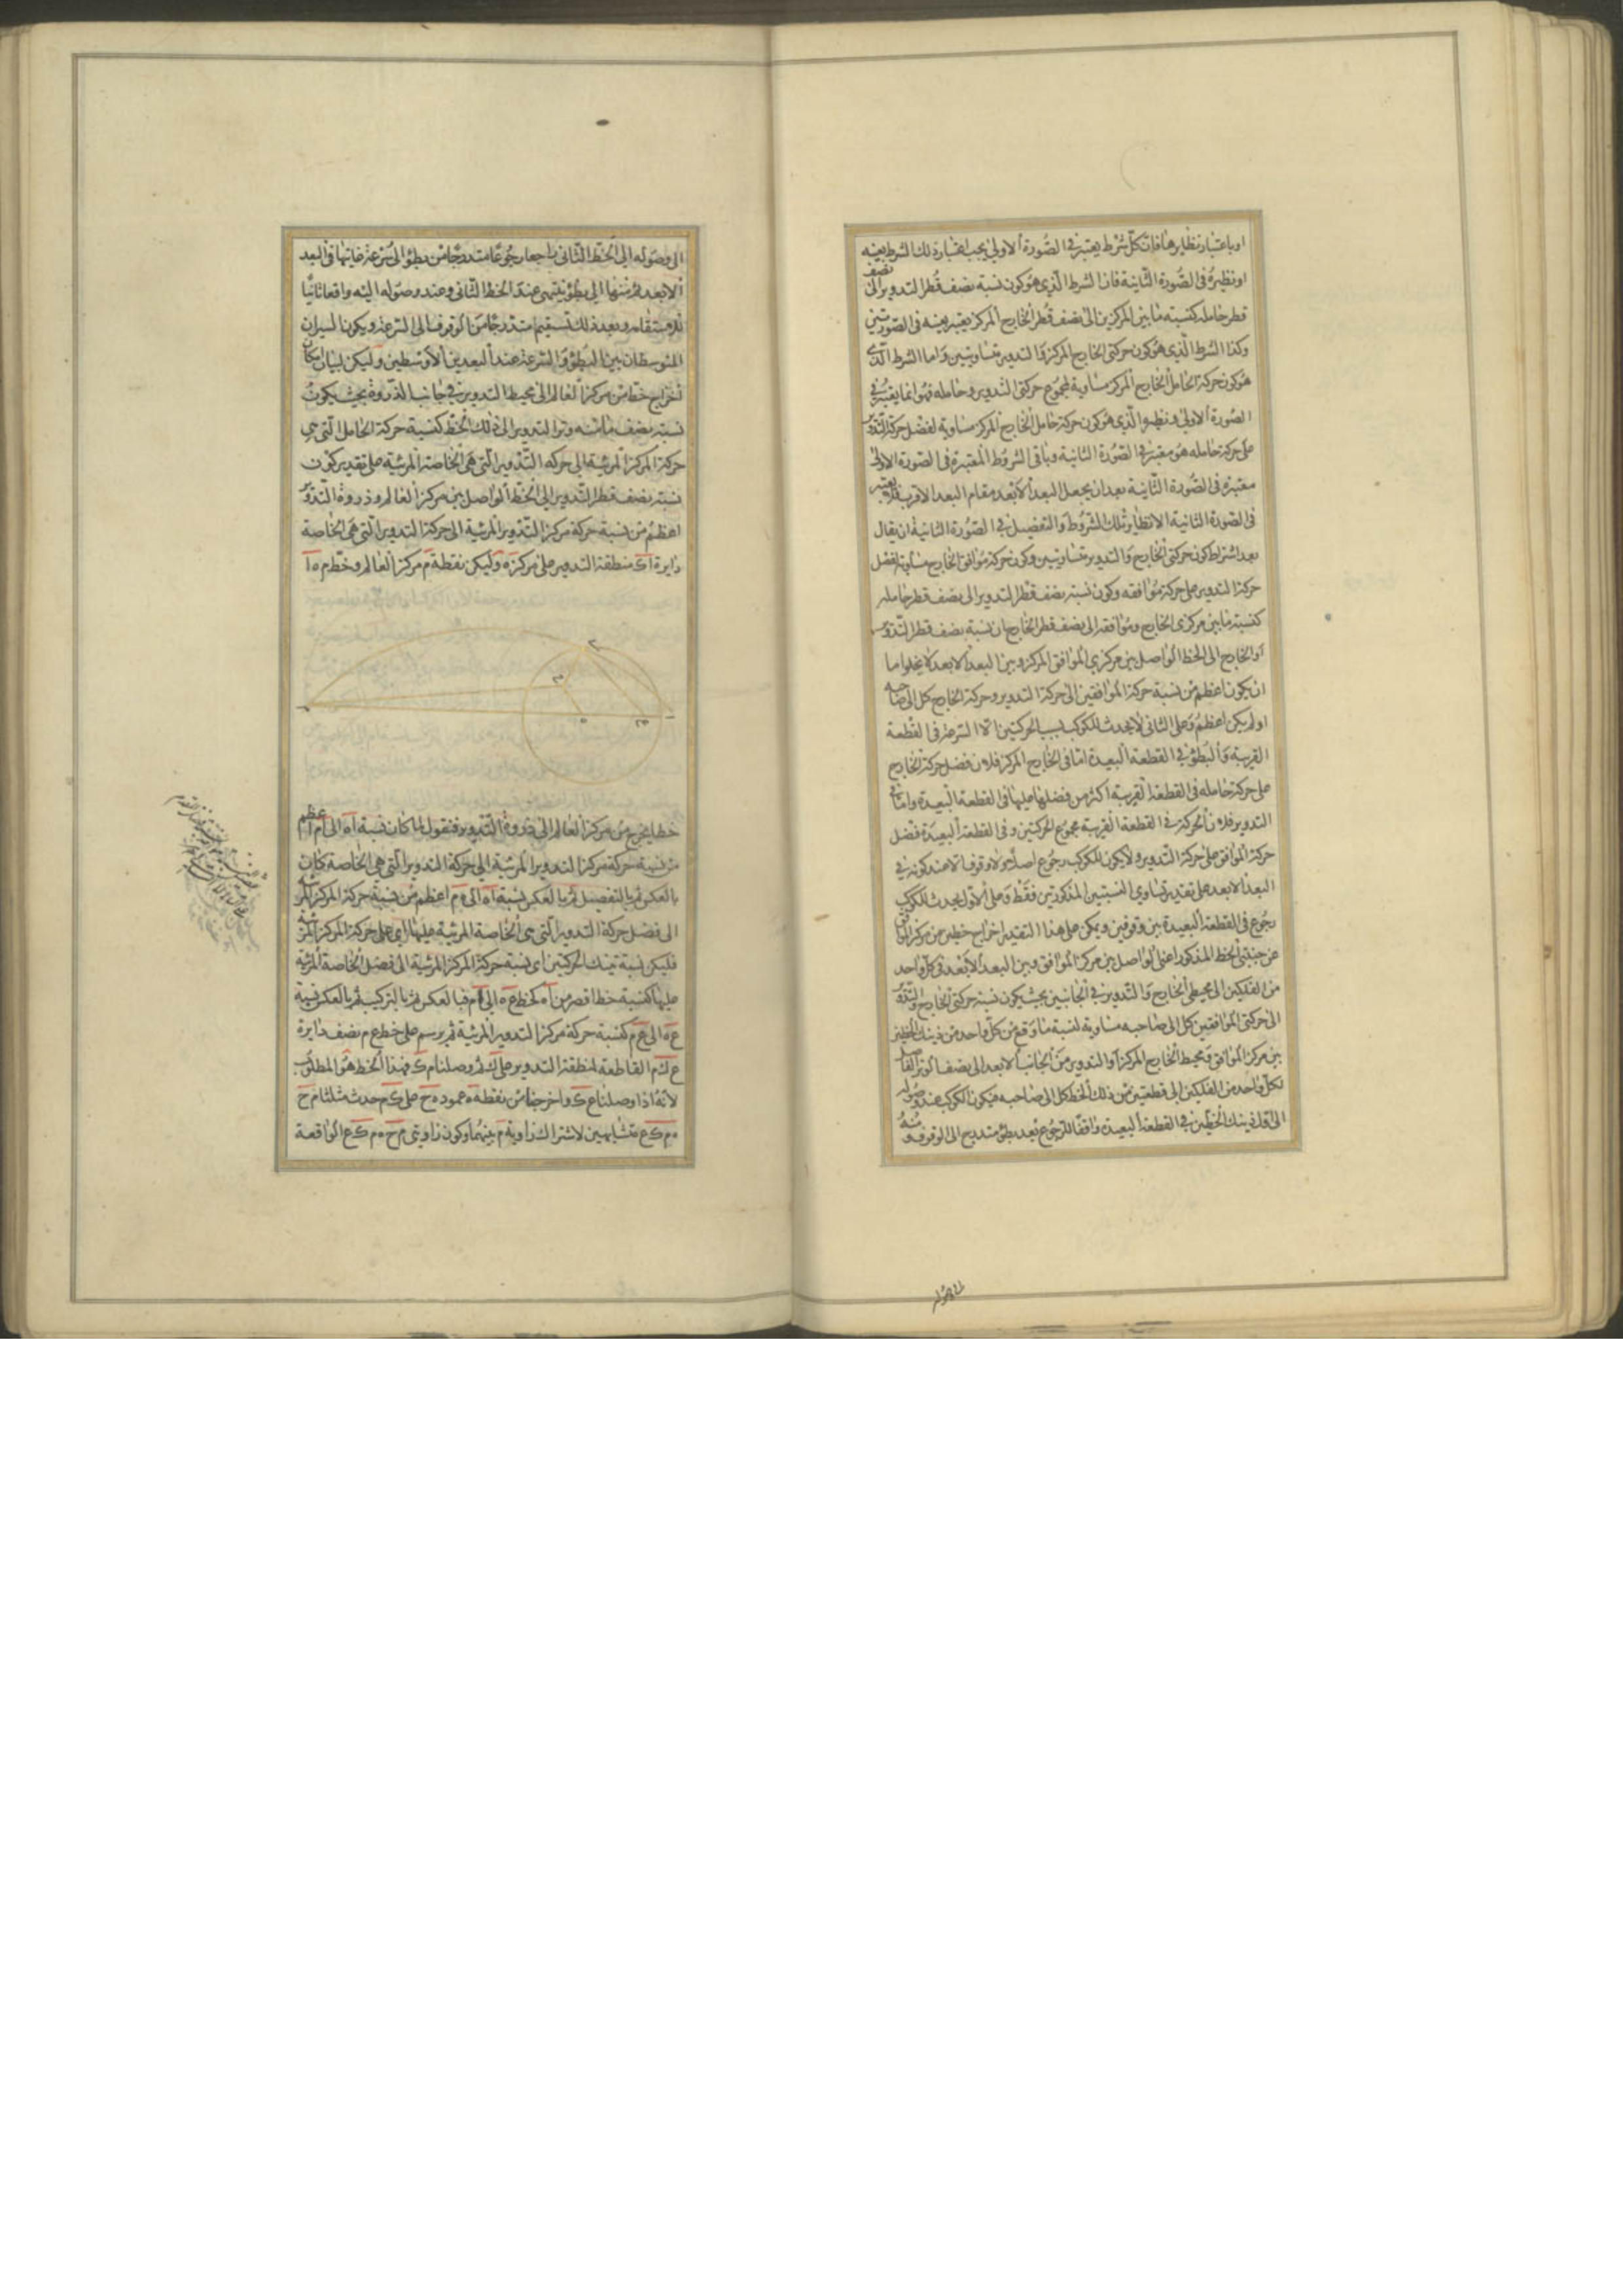 او باعتبار نظايرها فان كلّ شرط يعتبر في الصّورة الاولى يجب اعتبار ذلك الشرط بعينه
او نظيره في الصّورة الثّانية فان الشرط الّذي هو كون نسبة نصف قطر التدوير الى نصف
قطر حامله كنسبة ما بين المركزين الى نصف قطر الخارج المركز يعتبر بعينه في الصّورتين
وكذا الشرط الّذي هو كون حركتي الخارج المركز والتدوير متساويتين واما الشرط الّذي
هو كون حركة الحامل الخارج المركز مساوية لمجموع حركتي التدوير وحامله فهو انما يعتبر في
الصّورة الاولى ونظيره الّذي هو كون حركة حامل الخارج المركز مساوية لفضل حركة التدوير
على حركة حامله هو معتبر في الصّورة الثانية وباقي الشروط المعتبرة في الصّورة الاولى
معتبرة في الصّورة الثّانية بعد ان يجعل البعد الابعد مقام البعد الاقرب فلا يعتبر
في الصّورة الثانية الا نظاير تلك الشروط والتفصيل في الصّورة الثانية ان يقال
بعد اشتراط كون حركتي الخارج والتدوير متساويتين وكون حركة موافق الخارج مساوية لفضل
حركة التدوير على حركة موافقه وكون نسبة نصف قطر التدوير الى نصف قطر حامله
كنسبة ما بين مركزي الخارج وموافقه الى نصف قطر الخارج ان نسبة نصف قطر التدوير
او الخارج الى الخط الواصل بين مركزي الموافق المركز وبين البعد الابعد لا يخلو اما
ان يكون اعظم من نسبة حركة الموافقين الى حركة التدوير وحركة الخارج كل الى صاحبه
او لم يكن اعظم وعلى الثاني لا يحدث للكوكب بسبب الحركتين الا السرعة في القطعة
القريبة والبطؤ في القطعة البعيدة اما في الخارج المركز فلان فضل حركة الخارج
على حركة حامله في القطعة القريبة اكثر من فضلها عليها في القطعة البعيدة واما في
التدوير فلان الحركة في القطعة القريبة مجموع الحركتين وفي القطعة البعيدة فضل
حركة الموافق على حركة التدوير ولا يكون للكوكب رجوع اصلا ولا وقوف الا عند كونه في
البعد الابعد على تقدير تساوى النسبتين المذكورتين فقط وعلى الاول يحدث للكوكب
رجوع في القطعة البعيدة بين وقوفين ويمكن على هذا التقدير اخراج خطين من مركز الموافق
عن جنبتي الخط المذكور اعني الواصل بين مركز الموافق وبين البعد الابعد في كل واحد
من الفلكين الى محيطي الخارج والتدوير في الجانبين بحيث يكون نسبة حركتي الخارج والتدوير
الى حركتي الموافقين كل الى صاحبه مساوية لنسبة ما وقع من كل واحد من ذينك الخطين
بين مركز الموافق ومحيط الخارج المركز او التدوير من الجانب الابعد الى نصف الوتر الفاصل
لكل واحد من الفلكين الى قطعتين من ذلك الخط كل الى صاحبه فيكون الكوكب عند وصوله
الى اول ذينك الخطين في القطعة البعيدة واقفا للرجوع بعد بطؤ متدرج الى الوقوف ومنه
الى وصوله الى الخط الثاني راجعا رجوعا متدرجا من بطؤ الى سرعة غايتها في البعد
الابعد ثم منها الى بطؤ ينتهى عند الخط الثاني وعند وصوله اليه واقعا ثانيا
للاستقامة وبعد ذلك تستقيم متدرجا من الوقوف الى السرعة ويكون السيران
المتوسطان بين البطؤ والسرعة عند البعدين الاوسطين وليكن لبيان امكان
اخراج خط من مركز العالم الى محيط التدوير في جانب الذروة بحيث يكون
نسبة نصف ما منه وتر التدوير الى ذلك الخط كنسبة حركة الحامل الّتي هي
حركة المركز المرئية الى حركة التدوير الّتي هي الخاصة المرئية على تقدير كون
نسبة نصف قطر التدوير الى الخط الواصل بين مركز العالم وذروة التدوير
اعظم من نسبة حركة مركز التدوير المرئية الى حركة التدوير الّتي هي الخاصة
دايرة اك منطقة التدوير على مركز ه وليكن نقطة م مركز العالم وخط م ه ا
خطا يخرج من مركز العالم الى ذروة التدوير فنقول لما كان نسبة اه الى ام اعظم
من نسبة حركة مركز التدوير المرئية الى حركة التدوير الّتي هي الخاصة كان
بالعكس ثم بالتفصيل ثم بالعكس نسبة اه الى ه م اعظم من نسبة حركة المركز المرئية
الى فضل حركة التدوير الّتي هي الخاصة المرئية عليها اى على حركة المركز المرئية
فليكن نسبة تينك الحركتين اى نسبة حركة المركز المرئية الى فضل الخاصة المرئية
عليها كنسبة خط اقصر من اه كخط ع ه الى ه م فبالعكس ثم بالتركيب ثم بالعكس نسبة
ع ه الى ع م كنسبة حركة مركز التدوير المرئية ثم يرسم على خط ع م نصف دايرة
ع ك م القاطعة لمنطقة التدوير على ك ثم وصلنا م ك فهذا الخط هو المطلوب
لانه اذا وصلنا ع ك واخرجنا من نقطة ه عمود ه ح على ك م حدث مثلثا م ح
ه م ك ع متشابهين لاشتراك زاوية م بينهما وكون زاويتي م ح ه م ك ع الواقعة